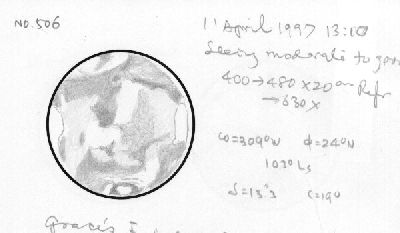 NO.506
11 April 1997 13:10
Seeing moderate to good
400→480×20cm Refr
→630×
ω=309°W φ=24°N
103° Ls
δ=13".3 ι=19°